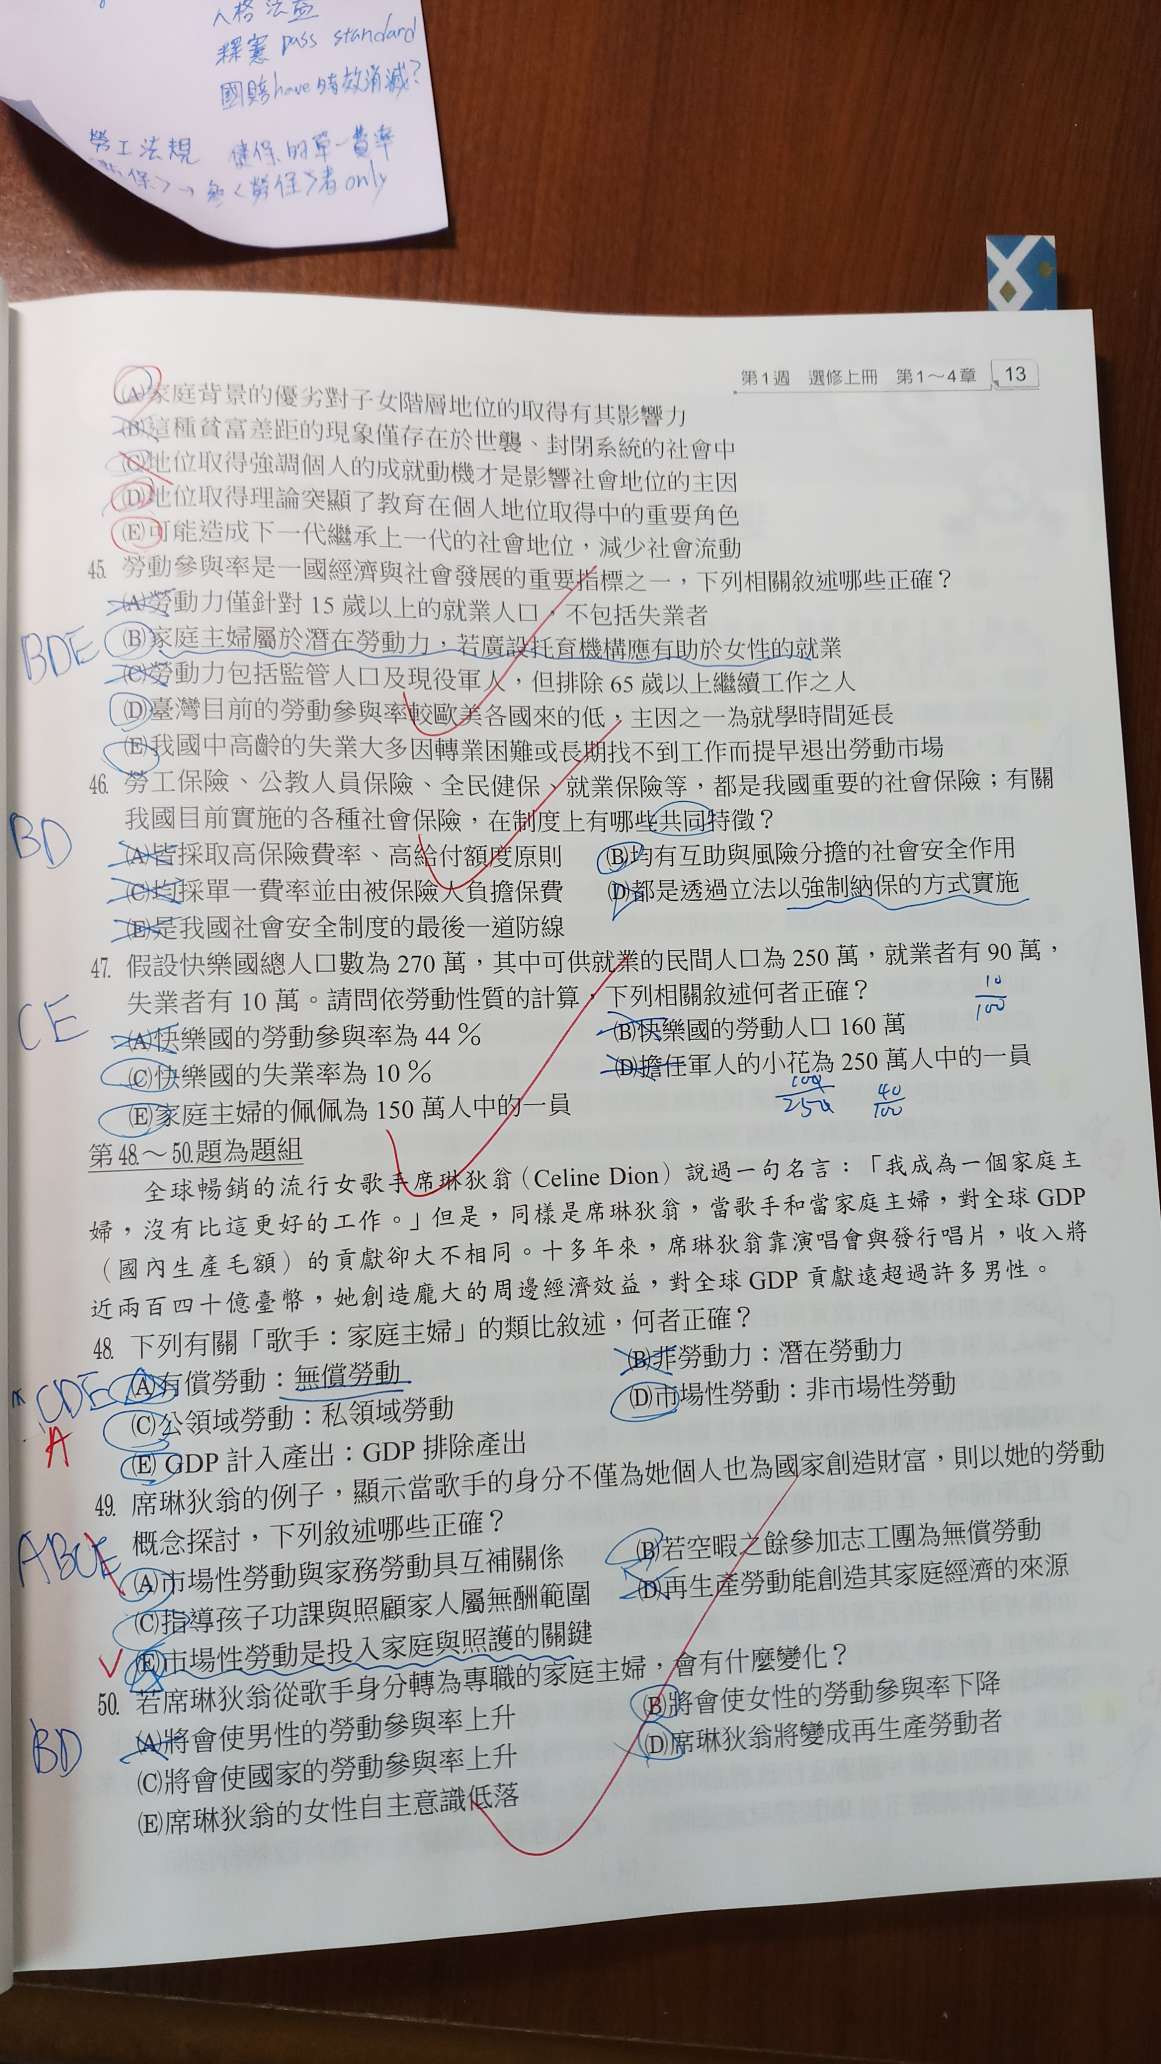 人格法益
釋憲 pass standard
國賠have時效消滅?
勞工法規 健保的單一費率
保>→ <勞保>者only
第1週 選修上冊 第1～4章 13
(A)家庭背景的優劣對子女階層地位的取得有其影響力
(B)這種貧富差距的現象僅存在於世襲、封閉系統的社會中
(C)地位取得強調個人的成就動機才是影響社會地位的主因
(D)地位取得理論突顯了教育在個人地位取得中的重要角色
(E)可能造成下一代繼承上一代的社會地位，減少社會流動
45. 勞動參與率是一國經濟與社會發展的重要指標之一，下列相關敘述哪些正確？
(A)勞動力僅針對 15 歲以上的就業人口，不包括失業者
BDE (B)家庭主婦屬於潛在勞動力，若廣設托育機構應有助於女性的就業
(C)勞動力包括監管人口及現役軍人，但排除 65 歲以上繼續工作之人
(D)臺灣目前的勞動參與率較歐美各國來的低，主因之一為就學時間延長
(E)我國中高齡的失業大多因轉業困難或長期找不到工作而提早退出勞動市場
46. 勞工保險、公教人員保險、全民健保、就業保險等，都是我國重要的社會保險；有關
我國目前實施的各種社會保險，在制度上有哪些共同特徵？
BD (A)皆採取高保險費率、高給付額度原則 (B)均有互助與風險分擔的社會安全作用
(C)均採單一費率並由被保險人負擔保費 (D)都是透過立法以強制納保的方式實施
(E)是我國社會安全制度的最後一道防線
47. 假設快樂國總人口數為 270 萬，其中可供就業的民間人口為 250 萬，就業者有 90 萬，
失業者有 10 萬。請問依勞動性質的計算，下列相關敘述何者正確？ 10/100
CE (A)快樂國的勞動參與率為 44 % (B)快樂國的勞動人口 160 萬
(C)快樂國的失業率為 10 % (D)擔任軍人的小花為 250 萬人中的一員
(E)家庭主婦的佩佩為 150 萬人中的一員 100/250 40/100
第48.～50.題為題組
全球暢銷的流行女歌手席琳狄翁（Celine Dion）說過一句名言：「我成為一個家庭主
婦，沒有比這更好的工作。」但是，同樣是席琳狄翁，當歌手和當家庭主婦，對全球 GDP
（國內生產毛額）的貢獻卻大不相同。十多年來，席琳狄翁靠演唱會與發行唱片，收入將
近兩百四十億臺幣，她創造龐大的周邊經濟效益，對全球 GDP 貢獻遠超過許多男性。
48. 下列有關「歌手：家庭主婦」的類比敘述，何者正確？
CDE (A)有償勞動：無償勞動 (B)非勞動力：潛在勞動力
A (C)公領域勞動：私領域勞動 (D)市場性勞動：非市場性勞動
(E) GDP 計入產出：GDP 排除產出
49. 席琳狄翁的例子，顯示當歌手的身分不僅為她個人也為國家創造財富，則以她的勞動
概念探討，下列敘述哪些正確？
ABCE (A)市場性勞動與家務勞動具互補關係 (B)若空暇之餘參加志工團為無償勞動
(C)指導孩子功課與照顧家人屬無酬範圍 (D)再生產勞動能創造其家庭經濟的來源
(E)市場性勞動是投入家庭與照護的關鍵
50. 若席琳狄翁從歌手身分轉為專職的家庭主婦，會有什麼變化？
BD (A)將會使男性的勞動參與率上升 (B)將會使女性的勞動參與率下降
(C)將會使國家的勞動參與率上升 (D)席琳狄翁將變成再生產勞動者
(E)席琳狄翁的女性自主意識低落